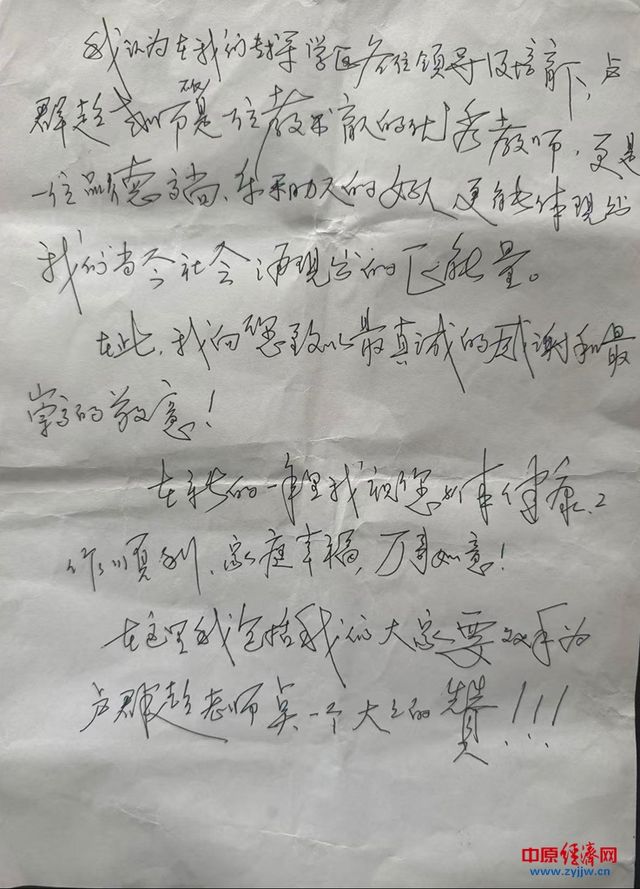 我认为在我们越界学区各位领导及培育下,卢
群超老师确是一位教书育人的优秀教师,更是
一位品德高尚、乐于助人的好人更能体现出
我们当今社会涌现出的正能量。
在此,我向您致以最真诚的感谢和最
崇高的敬意!
在新的一年里我祝您身体健康、工
作顺利、家庭幸福,万事如意!
在这里我包括我们大家要双手为
卢群超老师点一个大大的赞!!!
中原经济网
www.zyjjw.cn